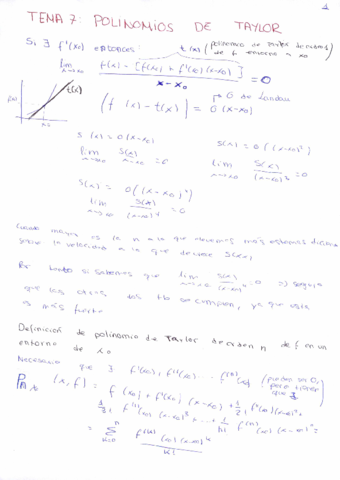 1
TEMA 7: POLINOMIOS DE TAYLOR
Si ∃ f'(x₀) entonces:
t(x) (polinomio de Taylor de orden 1
de f entorno a x₀)
lim x→x₀ f(x) - [f(x₀) + f'(x₀)(x-x₀)] / x-x₀ = 0
f(x)
t(x)
x₀
(f(x) - t(x)) = o(x-x₀)
o de Landau
S(x) = o(x-x₀)
lim x→x₀ S(x) / x-x₀ = 0
S(x) = o((x-x₀)³)
lim x→x₀ S(x) / (x-x₀)³ = 0
S(x) = o((x-x₀)ⁿ)
lim x→x₀ S(x) / (x-x₀)ⁿ = 0
Cuanto mayor es la n a la que elevamos más estamos diciendo
sobre la velocidad a la que decrece S(x).
Por tanto si sabemos que lim x→x₀ S(x) / (x-x₀)ⁿ = 0 ⇒ seguro
que los casos tb se cumplen, ya que este
es más fuerte
Definición de polinomio de Taylor de orden n de f en un
entorno de x₀
Necesario que ∃ f'(x₀), f''(x₀) ... f⁽ⁿ⁾(x₀) (pueden ser 0,
pero tienen
que ∃)
f(x₀) + f'(x₀)(x-x₀) + 1/2! f''(x₀)(x-x₀)² +
1/3! f'''(x₀)(x-x₀)³ + ... + 1/n! f⁽ⁿ⁾(x₀)(x-x₀)ⁿ =
= Σ k=0 n f⁽ᵏ⁾(x₀)(x-x₀)ᵏ / k!